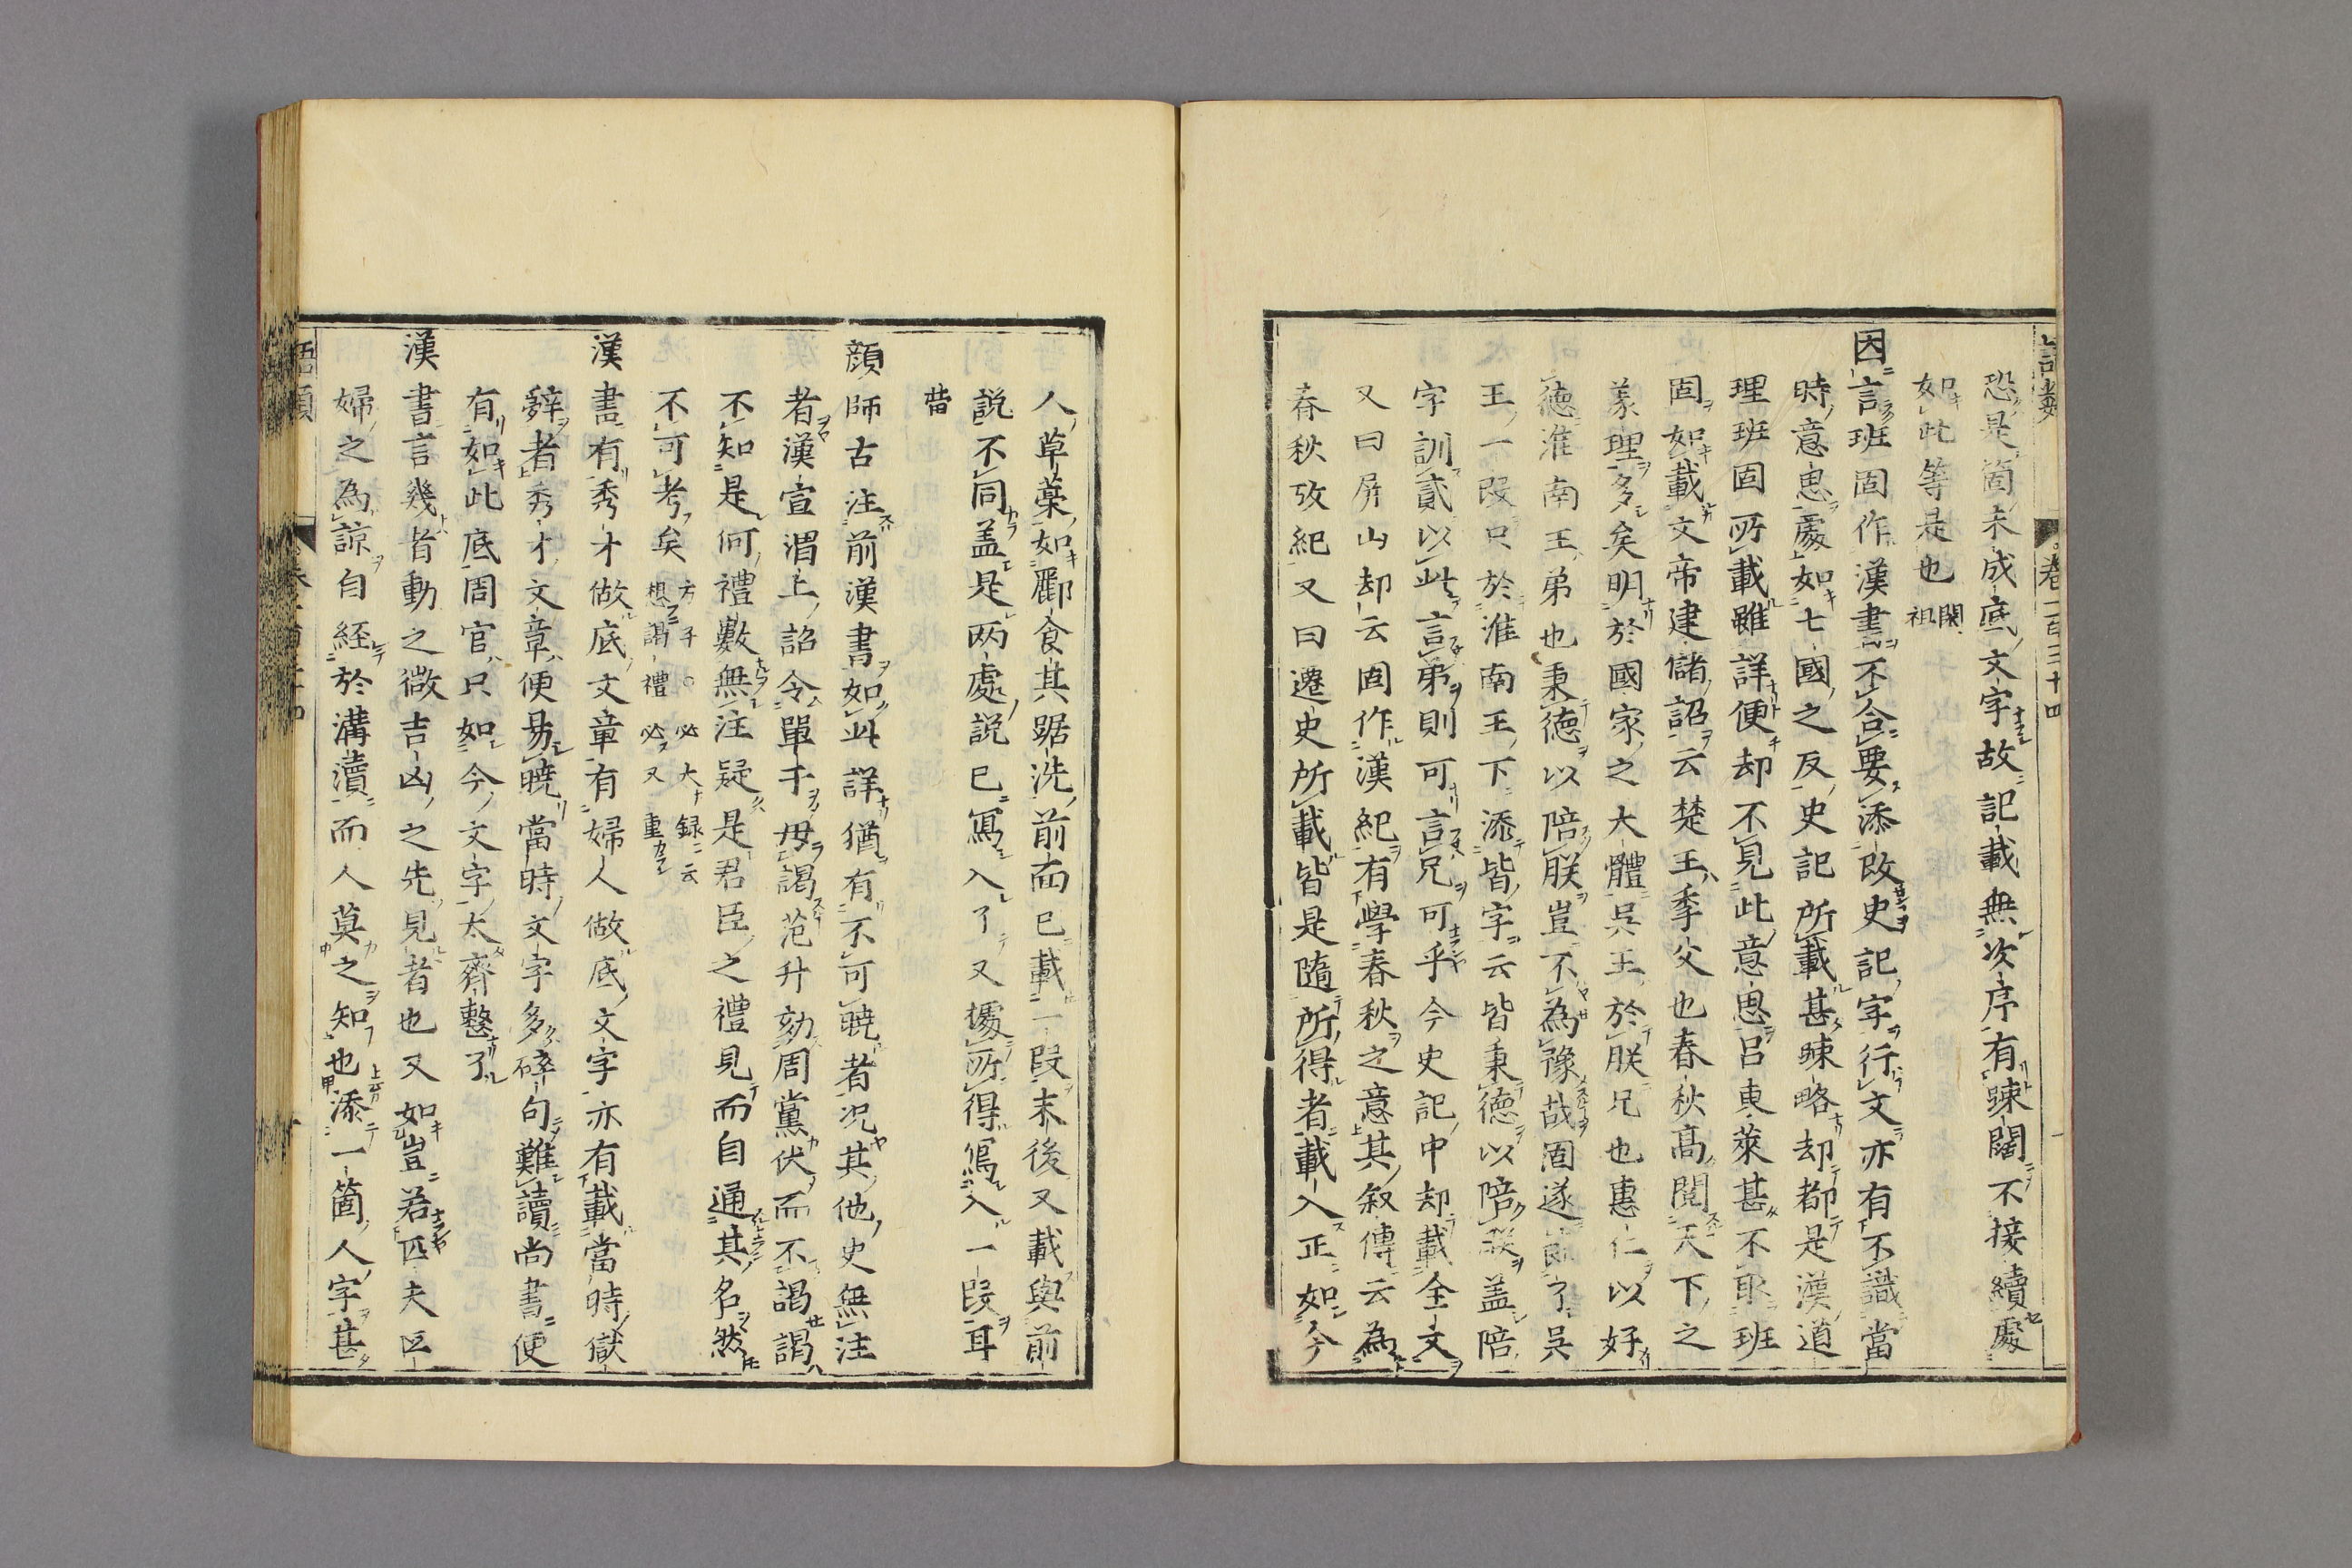 恐是箇未成底文字故記載無次序有踈闊不接續處
如此等是也閎祖
因言班固作漢書不合要添改史記字行文亦有不識當
時意思處如七國之反史記所載甚踈略却都是漢道
理班固所載雖詳便却不見此意思呂東萊甚不取班
固如載文帝建儲詔云楚王季父也春秋高閲天下之
義理多矣明於國家之大體呉王於朕兄也惠仁以好
徳淮南王弟也秉徳以陪朕豈不為豫哉固遂節了呉
王一段只於淮南王下添皆字云皆秉徳以陪朕盖陪
字訓貳以此言弟則可言兄可乎今史記中却載全文
又曰屏山却云固作漢紀有學春秋之意其叙傳云為
春秋攷紀又曰遷史所載皆是隨所得者載入正如今
人草藁如酈食其踞洗前面已載一段末後又載與前
説不同盖是兩處説已寫入了又據所得寫入一段耳
㽦
顔師古注前漢書如此詳猶有不可曉者况其他史無注
者漢宣渭上詔令單于毋謁范升劾周黨伏而不謁謁
不知是何禮數無注疑是君臣之禮見而自通其名然
不可考矣方子○必大録云想謁禮必又重
漢書有秀才做底文章有婦人做底文字亦有載當時獄
辭者秀才文章便易曉當時文字多碎句難讀尚書便
有如此底周官只如今文字太齊整了
漢書言幾者動之微吉凶之先見者也又如豈若匹夫匹
婦之為諒自經於溝瀆而人莫之知也添一箇人字甚
語類
卷一百三十四